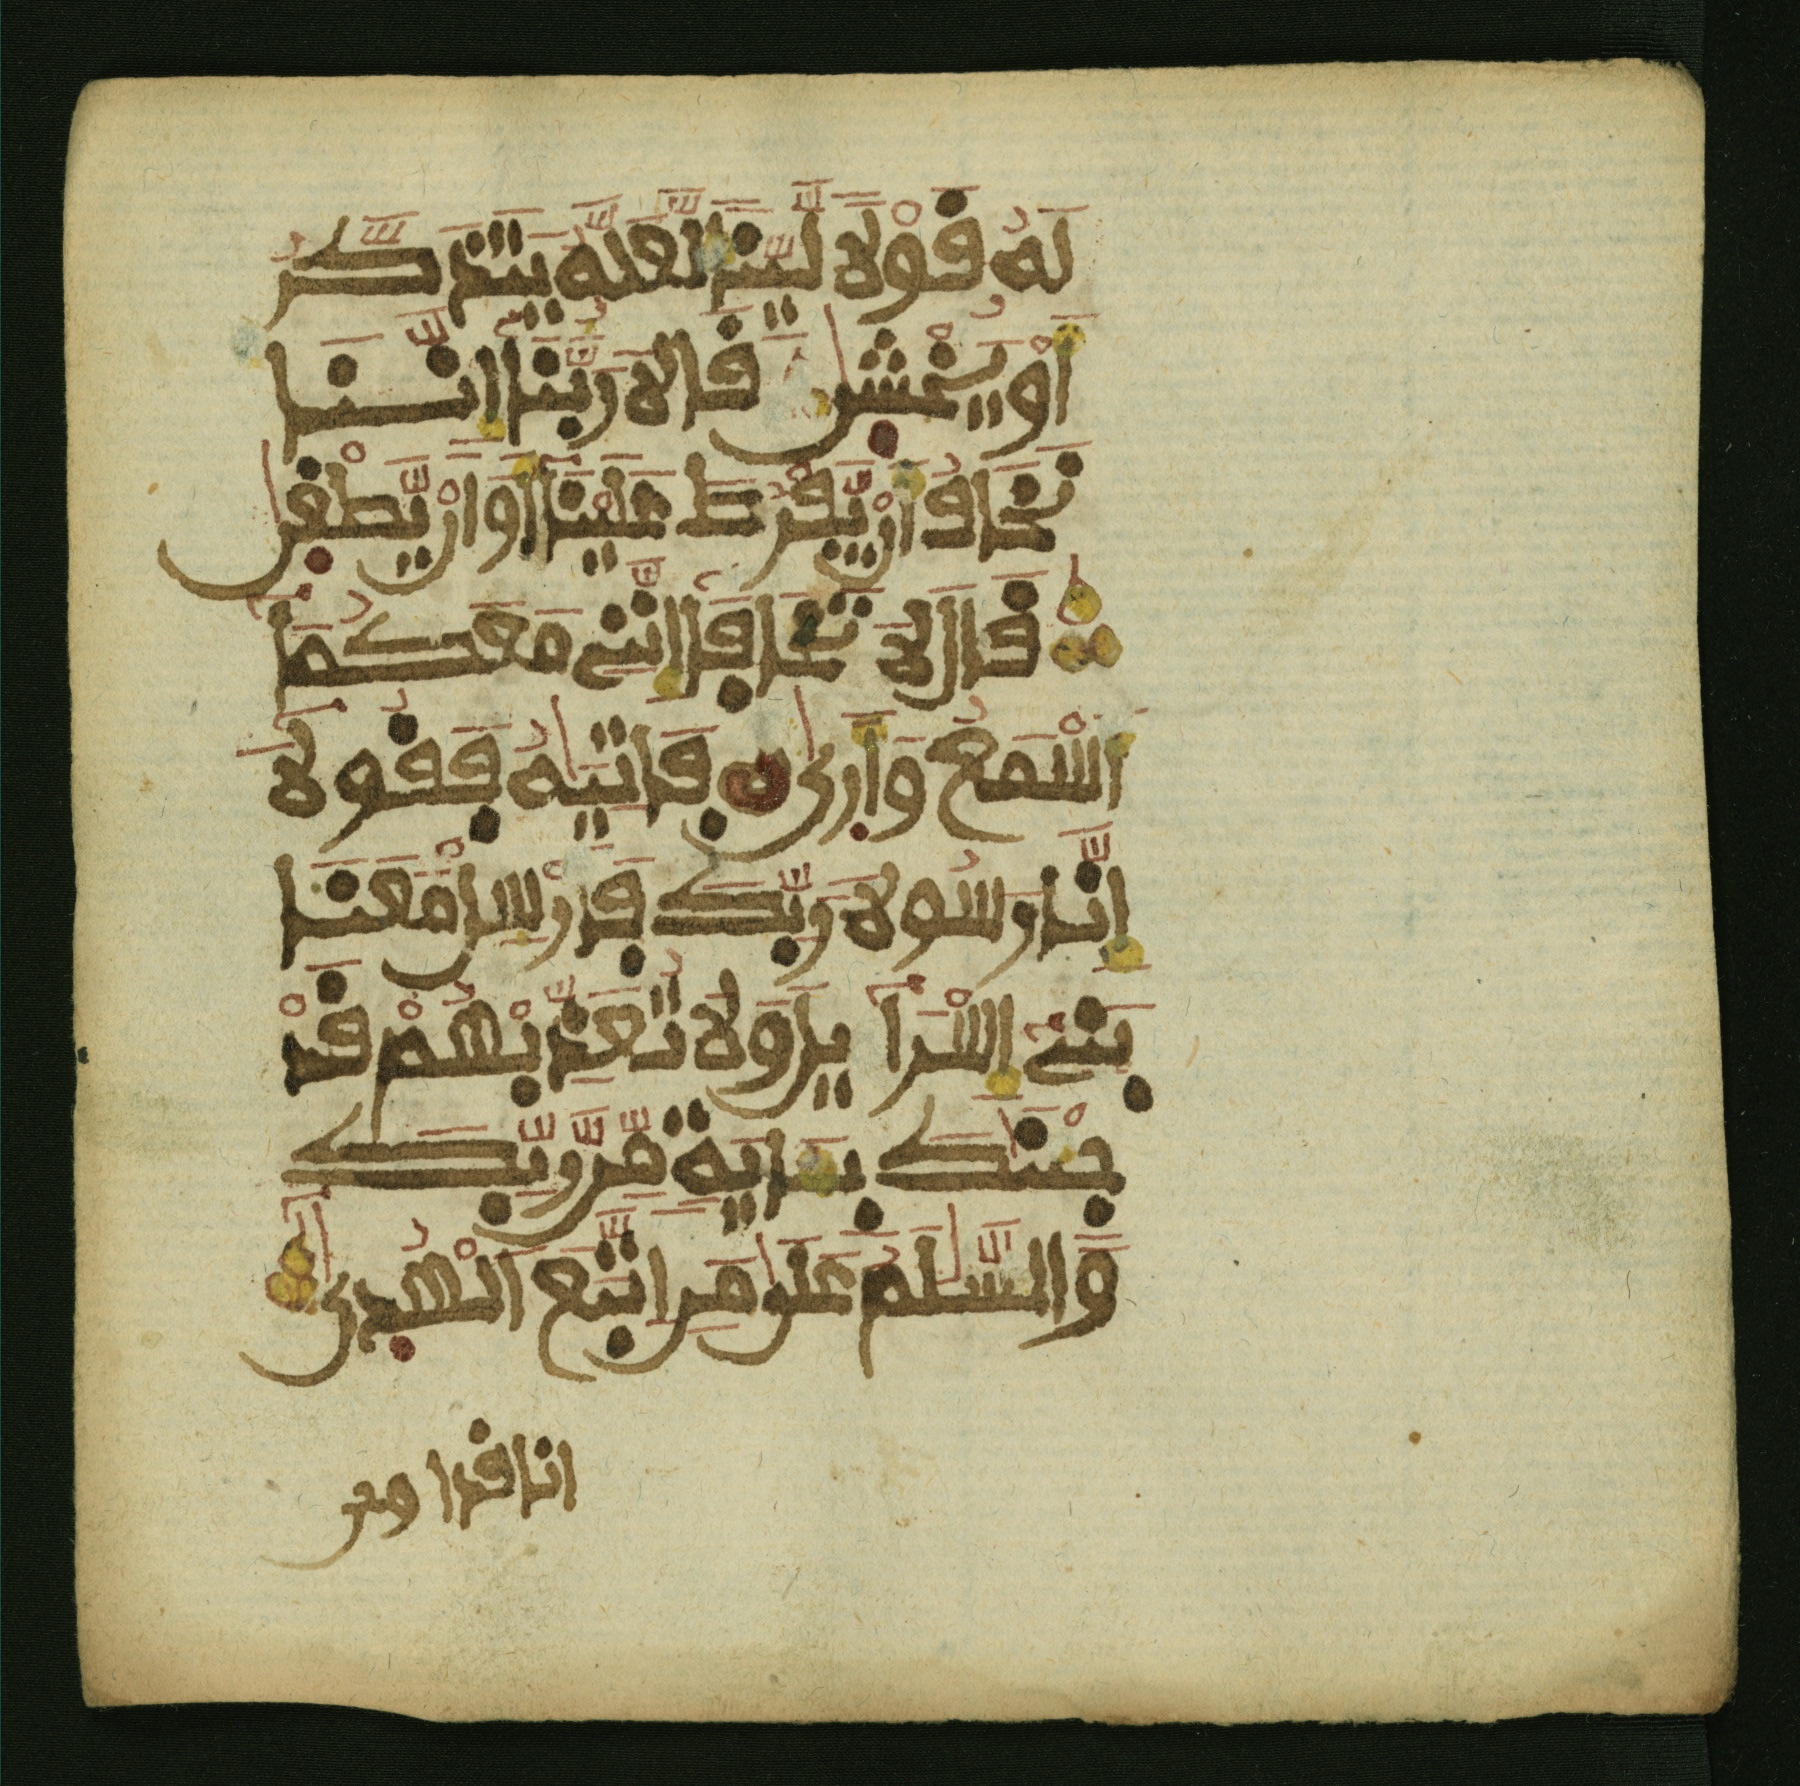 لَهُۥ قَوْلًا لَّيِّنًا لَّعَلَّهُۥ يَتَذَكَّرُ
أَوْ يَخْشىٰ قَالَا رَبَّنَآ إِنَّنَا
نَخَافُ أَنْ يَّفْرُطَ عَلَيْنَآ أَوْ أَنْ يَّطْغىٰ
قَالَ لَا تَخَافَآ إِنَّنِے مَعَكُمَآ
أَسْمَعُ وَأَرىٰ فَاتِيَٰهُ فَقُولَآ
إِنَّا رَسُولَا رَبِّكَ فَأَرْسِلْ مَعَنَا
بَنِےٓ إِسْرَآءِيلَ وَلَا تُعَذِّبْهُمْ قَدْ
جِئْنَٰكَ بِـَٔايَةٍ مِّن رَّبِّكَ
وَالسَّلَٰمُ عَلىٰ مَنِ اتَّبَعَ الْهُدىٰٓ
انا قدا وحى